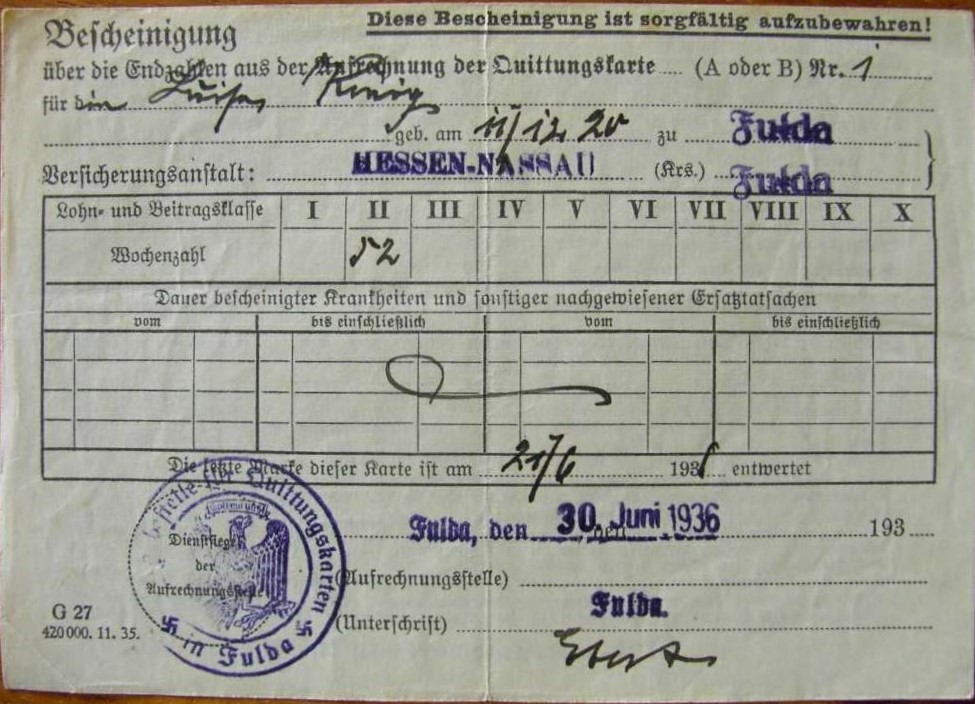 Diese Bescheinigung ist sorgfältig aufzubewahren!
Bescheinigung
über die Endzahlen aus der Aufrechnung der Quittungskarte (A oder B) Nr. 1
für die Luise König
geb. am 11/12. 20 zu Fulda
Versicherungsanstalt: HESSEN-NASSAU (Krs.) Fulda
Lohn- und Beitragsklasse I II III IV V VI VII VIII IX X
Wochenzahl 52
Dauer bescheinigter Krankheiten und sonstiger nachgewiesener Ersatztatsachen
vom bis einschließlich vom bis einschließlich
Die letzte Marke dieser Karte ist am 21/6 193 entwertet
Fulda, den 30. Juni 1936 193
Quittungskarten
Dienstsiegel
der
Aufrechnungsstelle
in Fulda
(Aufrechnungsstelle)
Fulda.
(Unterschrift)
G 27
420 000. 11. 35.